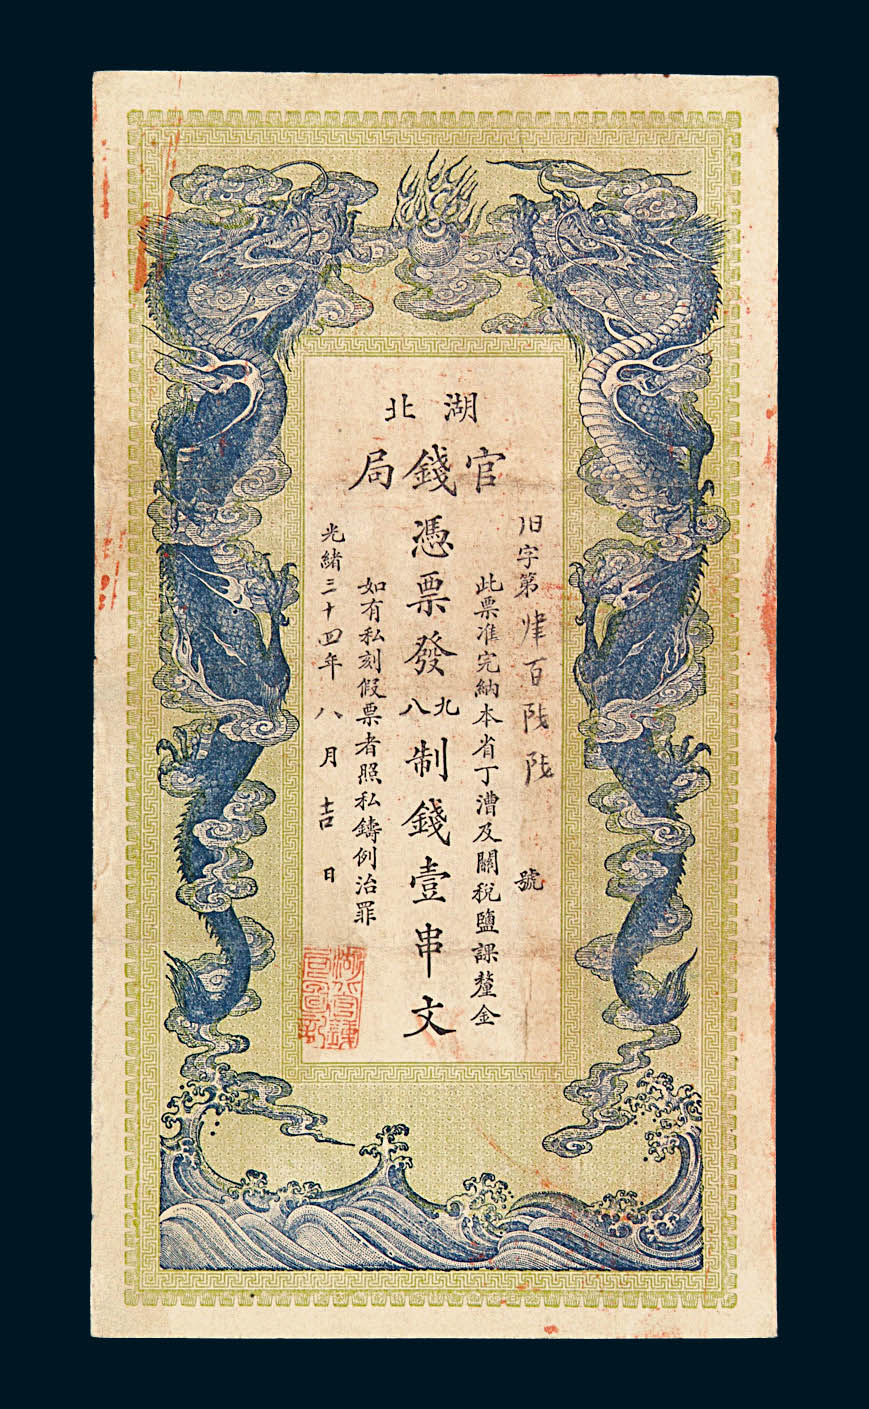 湖北
官錢局
旧字第肆百陸陸號
此票准完納本省丁漕及關稅鹽課釐金
憑票發九八制錢壹串文
如有私刻假票者照私鑄例治罪
光緒三十四年八月吉日